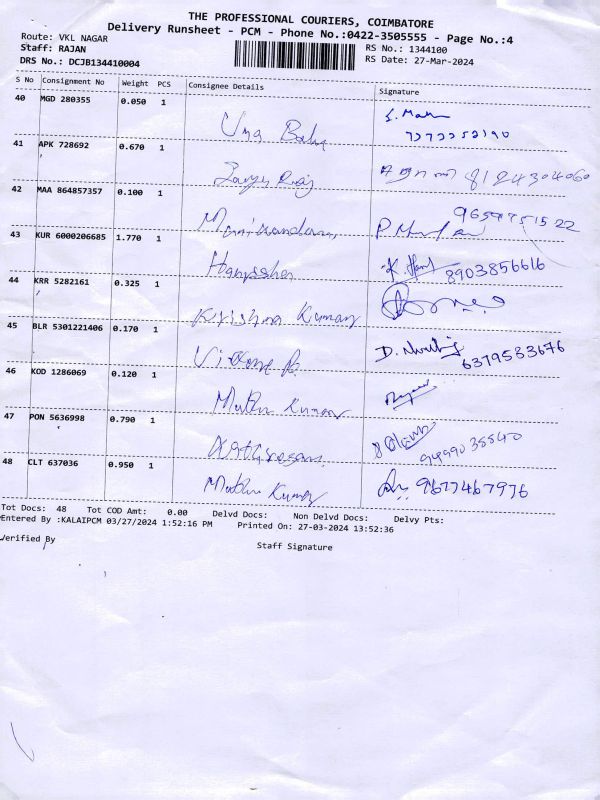 THE PROFESSIONAL COURIERS, COIMBATORE
Delivery Runsheet - PCM - Phone No.:0422-3505555 - Page No.:4
Route: VKL NAGAR
RS No.: 1344100
Staff: RAJAN
RS Date: 27-Mar-2024
DRS No.: DCJB134410004
S No Consignment No Weight PCS Consignee Details Signature
40 MGD 280355 0.050 1
Uma
41 APK 728692 0.670 1
8124304060
42 MAA 864857357 0.100 1
Manikandan
43 KUR 6000206685 1.770 1
8903856616
44 KRR 5282161 0.325 1
Krishna Kumar
45 BLR 5301221406 0.170 1
6379583676
46 KOD 1286069 0.120 1
Muthu Kumar
47 PON 5636998 0.790 1
48 CLT 637036 0.950 1
Muthu Kumar 9677467976
Tot Docs: 48 Tot COD Amt: 0.00 Delvd Docs: Non Delvd Docs: Delvy Pts:
Entered By :KALAIPCM 03/27/2024 1:52:16 PM Printed On: 27-03-2024 13:52:36
Verified By
Staff Signature